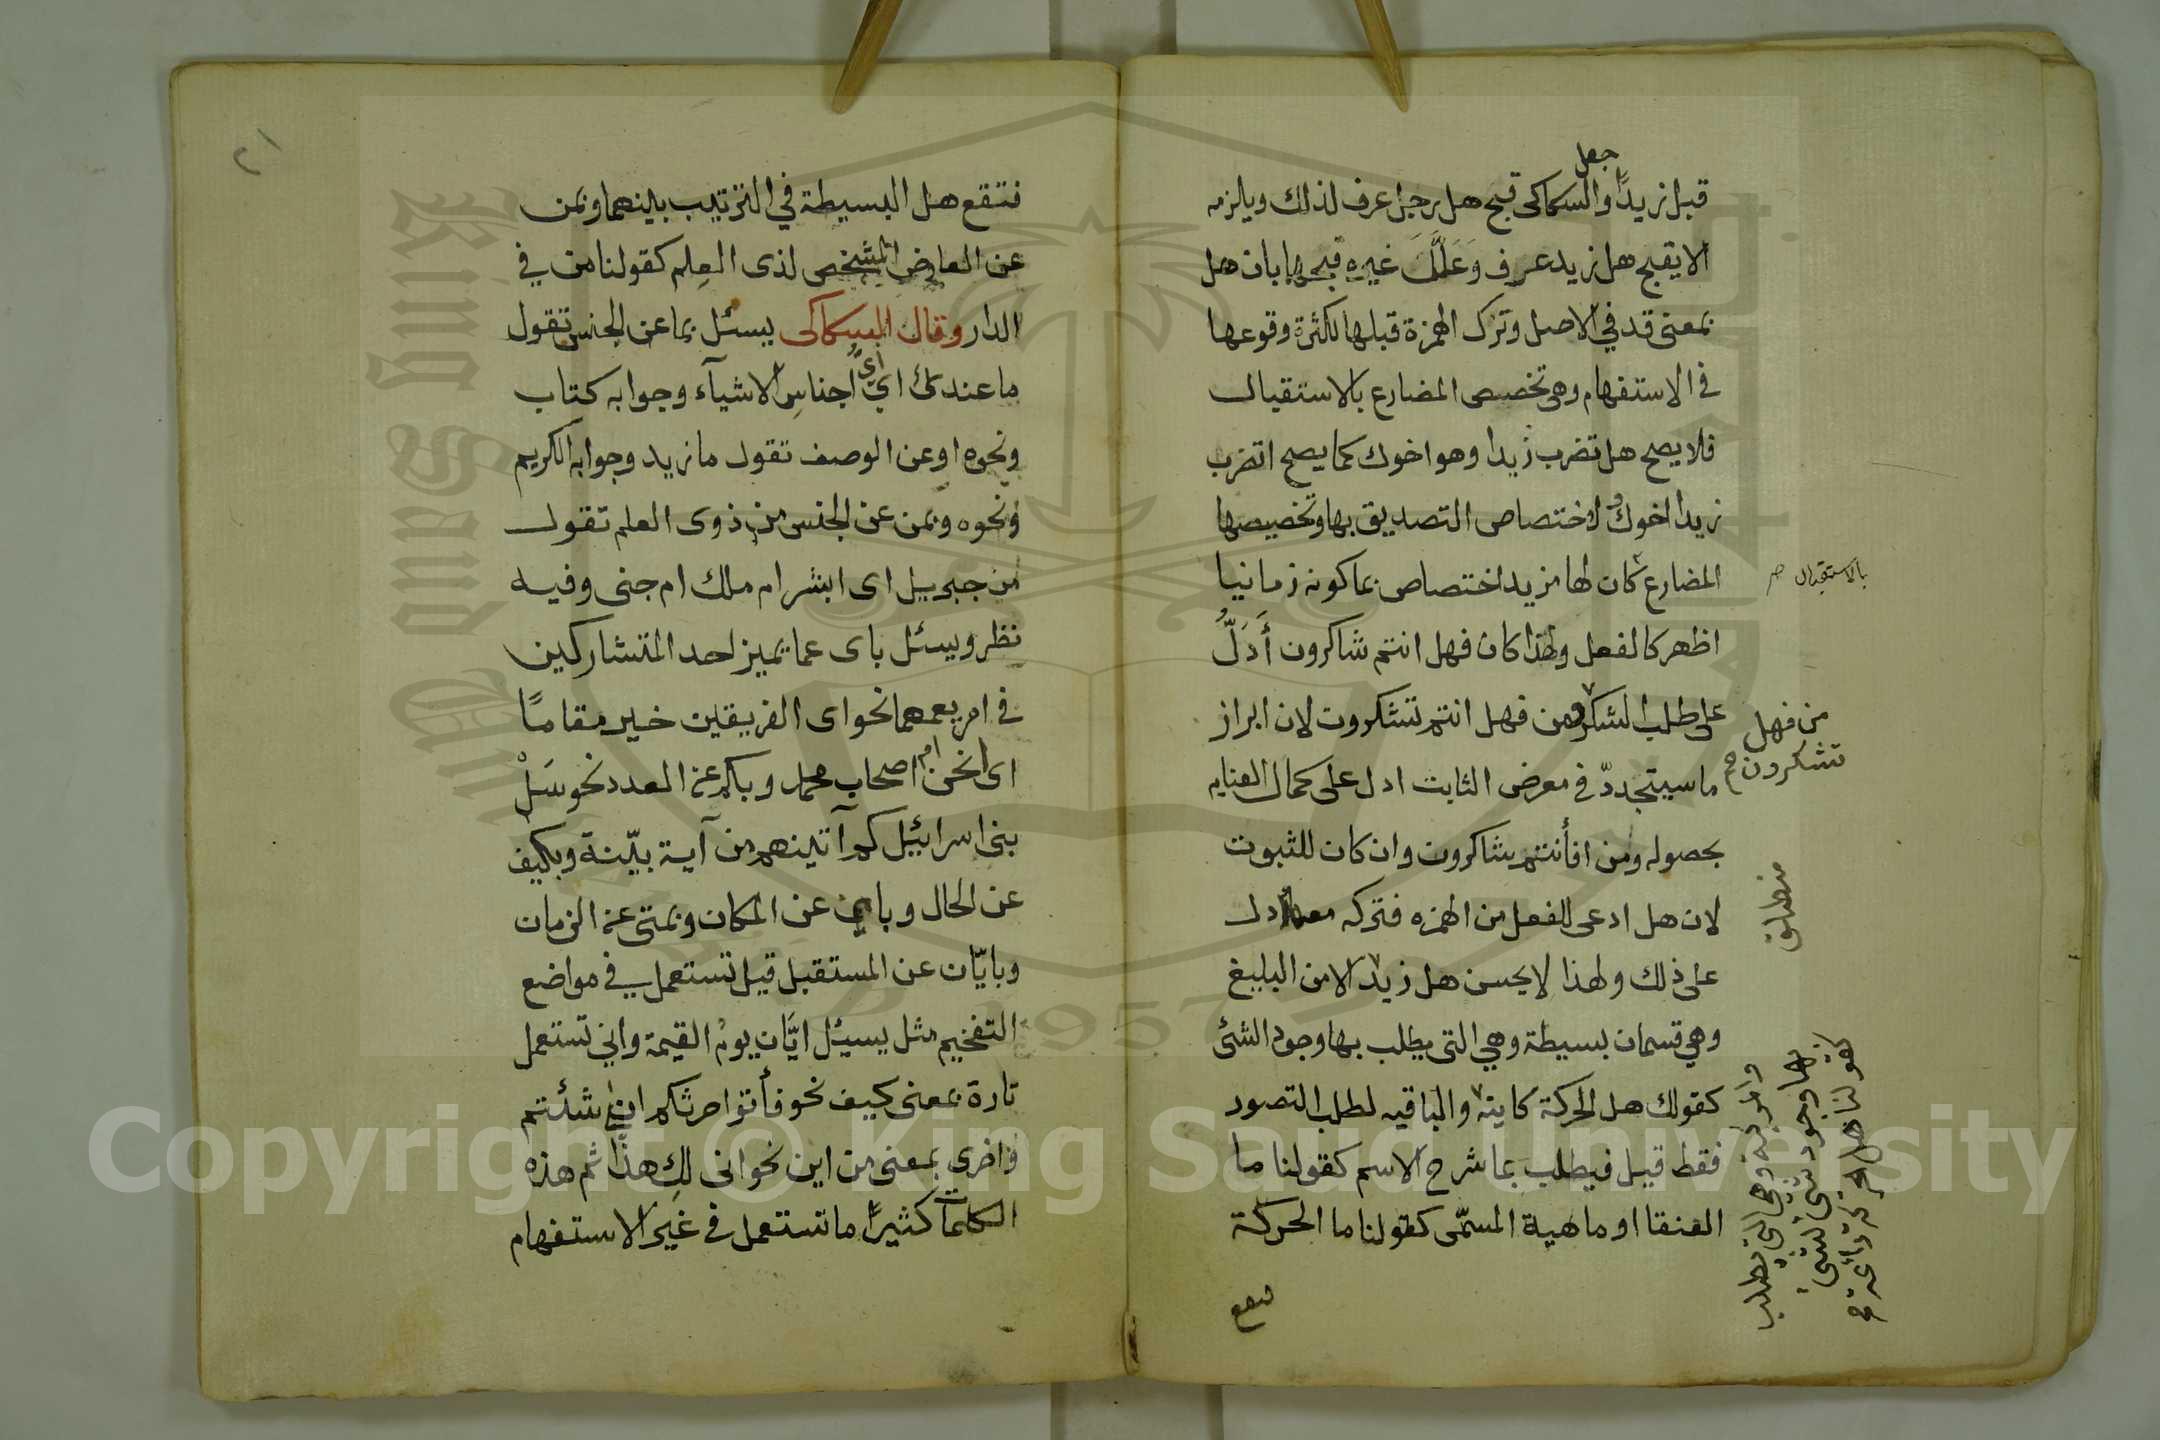 جعل
قبل زيدًا والسكاكى قبح هل رجل عرف لذلك ويلزمه
الا يقبح هل زيد عرف وَعَلَّلَ غيره قبحهما بان هل
بمعنى قد في الاصل وترك الهمزة قبلها لكثرة وقوعها
في الاستفهام وهي تخصص المضارع بالاستقبال
فلا يصح هل تضرب زيدا وهو اخوك كما يصح اتضرب
زيدا وهو اخوك لاختصاص التصديق بها وتخصيصها
المضارع كان لها مزيد اختصاص بما كونه زمانيا
بالاستقبال صح
اظهر كالفعل ولهذا كان فهل انتم شاكرون أَدَلُّ
على طلب الشكر من فهل انتم تشكرون لان ابراز
من فهل
تشكرون صح
ما سيتجددّ في معرض الثابت ادل على كمال العنايه
بحصوله ومن افأنتم شاكرون وان كان للثبوت
لان هل ادعى للفعل من الهمزه فتركه معها ادل
على ذلك ولهذا لا يحسن هل زيد الا من البليغ
منطلق
وهي قسمان بسيطة وهي التى يطلب بها وجود الشئ
كقولك هل الحركة كاينة والباقيه لطلب التصور
فقط قيل فيطلب بما شرح الاسم كقولنا ما
العنقا او ماهية المسمّى كقولنا ما الحركة
ومركبة وهي التي تطلب
بها وجود شئ لشئ
كقولنا هل الحركة دائمة
فتقع
٢١
فتقع هل البسيطة في الترتيب بينهما وبمن
عن العارض المشخص لذى العِلم كقولنا من في
الدار وقال السكاكى يسئل بما عن الجنس تقول
ما عندك اي أيُّ اجناسِ الاشيآء وجوابه كتاب
ونحوه او عن الوصف تقول ما زيد وجوابه الكريم
ونحوه وبمن عن الجنس من ذوى العلم تقول
من جبريل اى ابشر ام ملك ام جنى وفيه
نظر ويسئل باى عما يميز احد المتشاركين
في امر يعمهما نحو اى الفريقين خير مقامًا
اى انحن ام اصحاب محمد وبكم عن العدد نحو سَلْ
بنى اسرائيل كم آتينهم من آية بيّنة وبكيف
عن الحال وباين عن المكان وبمتى عن الزمان
وبايّان عن المستقبل قيل تستعمل في مواضع
التفخيم مثل يسئل ايَّان يومُ القيمة وانى تستعمل
تارة بمعنى كيف نحو فأتوا حرثكم انى شئتم
واخرى بمعنى من اين نحو انى لكِ هذا ثم هذه
الكلمات كثيرًا ما تستعمل في غير الاستفهام
Copyright © King Saud University
King Saud University
1957